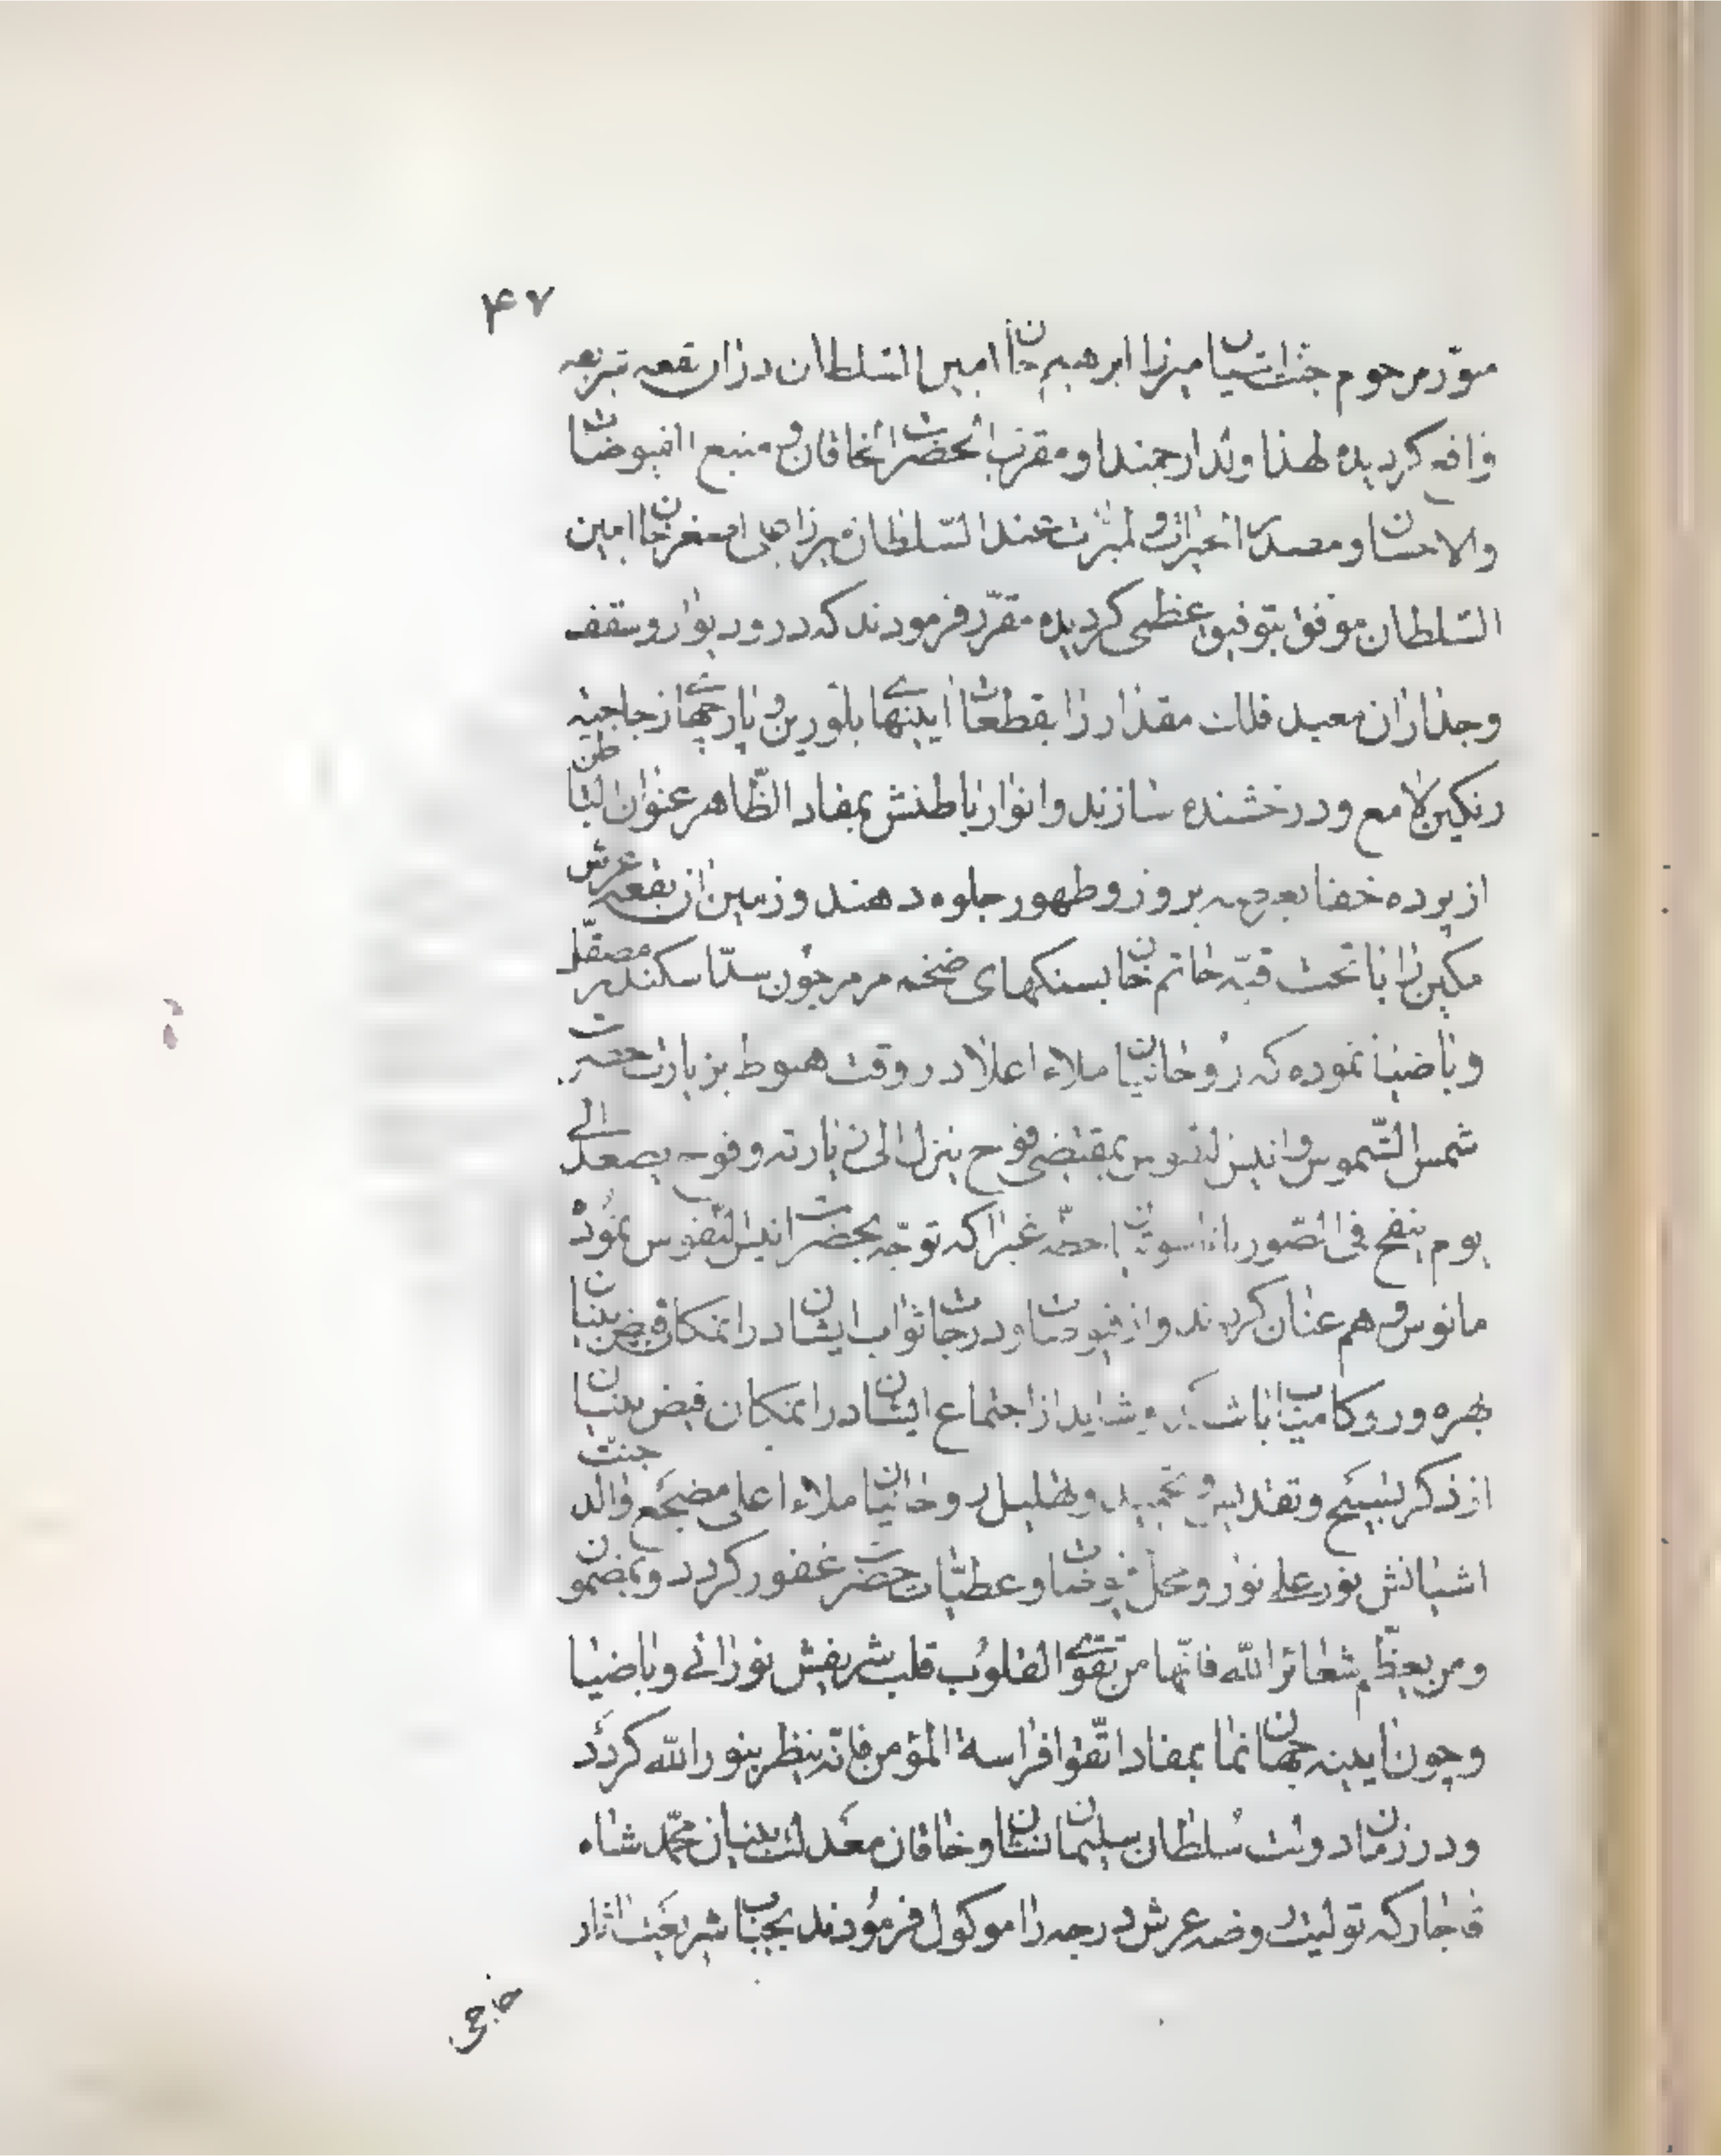 ۴۷
منوّر مرحوم جنّت آشیان میرزا ابرهیم خان امین السّلطان در ان بقعه شریفه
واقع کردیده لهذا ولد ارجمند او مقرّب الحضرت الخاقان و منبع الفیوضات
والاحسان و مصدر الخیرات و المبرّت عند السّلطان میرزا علی اصغر خان امین
السّلطان موفّق بتوفیق عظمی کردیده مقرّر فرمودند که در و دیوار و سقف
وجداران معبد فلک مقدار را بقطعات ایینهای بلّورین و پارچهای زجاجیّه
رنکین لامع و درخشنده سازند و انوار باطنش بمفاد الظّاهر عنوان الباطن
از پرده خفا بعرصه بروز و ظهور جلوه دهند و زمین ان بقعه عرش
مکین را با تحت قبّه حاتم خان بسنکهای ضخمه مرمر چون سدّ اسکندر مصقّل
و باضیا نموده که روحانیان ملاء اعلا در وقت هبوط بزیارت حضرت
شمس الشّموس و انیس النفوس بمقتضی فوج ینزل الی زیارته و فوج یصعد الی
یوم ینفخ فی الصّور با ناسوتیان خطّه غبرا که توجّه بحضرت انیس النّفوس نموده
مانوس و هم عنان کردند و از فیوضات و درجات ثواب ایشان در انمکان فیض بنیان
بهره ور و کامیاب باشند و شاید از اجتماع ایشان در انمکان فیض بنیان
از ذکر تسبیح و تقدیس و تمجید و تهلیل روحانیان ملاء اعلی مضجع والد جنّت
اشیانش نور علی نور و محلّ فیوضات و عطیّات حضرت غفور کردد و بمضمون
ومن یعظّم شعائر اللّه فانّها من تقوی القلوب قلب شریفش نورانی و باضیا
و چون ایینه جهان نما بمفاد اتّقوا فراسة المؤمن فانّه ینظر بنور اللّه کردد
و در زمان دولت سلطان سلیمان نشان و خاقان معدلت بنیان محمّد شاه
قاجار که تولیت روضه عرش درجه را موکول فرمودند بجناب شریعت اثار
حاجی